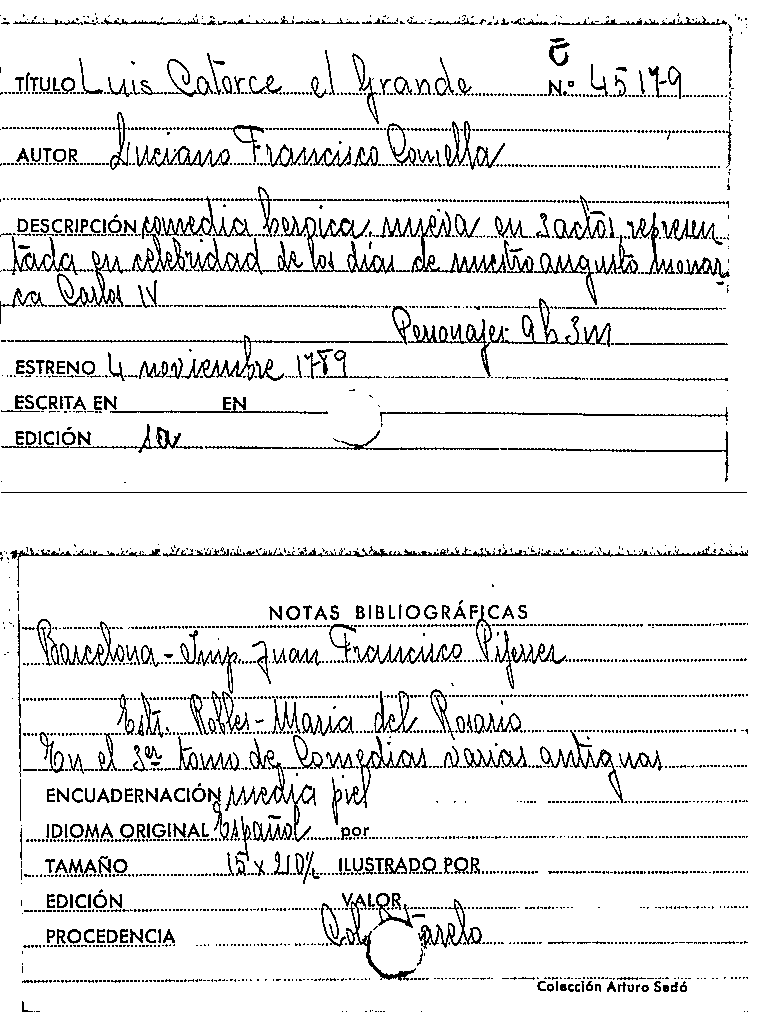 C
TÍTULO Luis Catorce el Grande N.º 45179
AUTOR Luciano Francisco Comella
DESCRIPCIÓN comedia heroica, nueva en 3 actos represen
tada en celebridad de los días de nuestro augusto monar
ca Carlos IV
Personajes 9h 3m
ESTRENO 4 noviembre 1789
ESCRITA EN EN
EDICIÓN 1a
NOTAS BIBLIOGRÁFICAS
Barcelona - Imp. Juan Francisco Piferrer
Estr. Robles - Maria del Rosario
En el 3er tomo de Comedias varias antiguas
ENCUADERNACIÓN media piel
IDIOMA ORIGINAL Español por
TAMAÑO 15 x 210% ILUSTRADO POR
EDICIÓN VALOR
PROCEDENCIA Col.
Colección Arturo Sedó